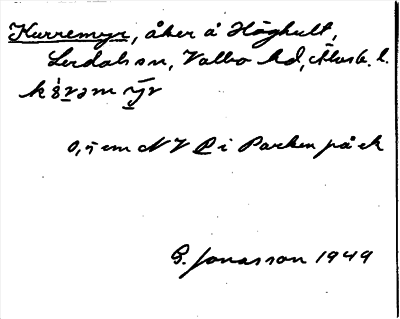 Kurremyr, åker å Höghult,
Lerdals sn, Valbo hd, Älvsb. l.
0,5 cm N V P i Parken på ek
G. Jonasson 1949